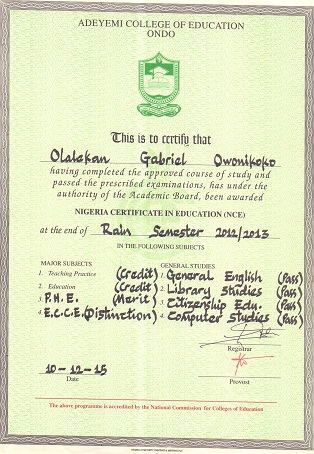 ADEYEMI COLLEGE OF EDUCATION
ONDO
This is to certify that
Olalekan Gabriel Owonikoko
having completed the approved course of study and
passed the prescribed examinations, has under the
authority of the Academic Board, been awarded
NIGERIA CERTIFICATE IN EDUCATION (NCE)
at the end of Rain Semester 2012/2013
IN THE FOLLOWING SUBJECTS
MAJOR SUBJECTS
1. Teaching Practice (Credit)
2. Education (Credit)
3. P.H.E. (Merit)
4. E.C.C.E. (Distinction)
GENERAL STUDIES
1. General English (Pass)
2. Library Studies (Pass)
3. Citizenship Edu. (Pass)
4. Computer Studies (Pass)
Registrar
10-12-15
Date
Provost
The above programme is accredited by the National Commission for Colleges of Education